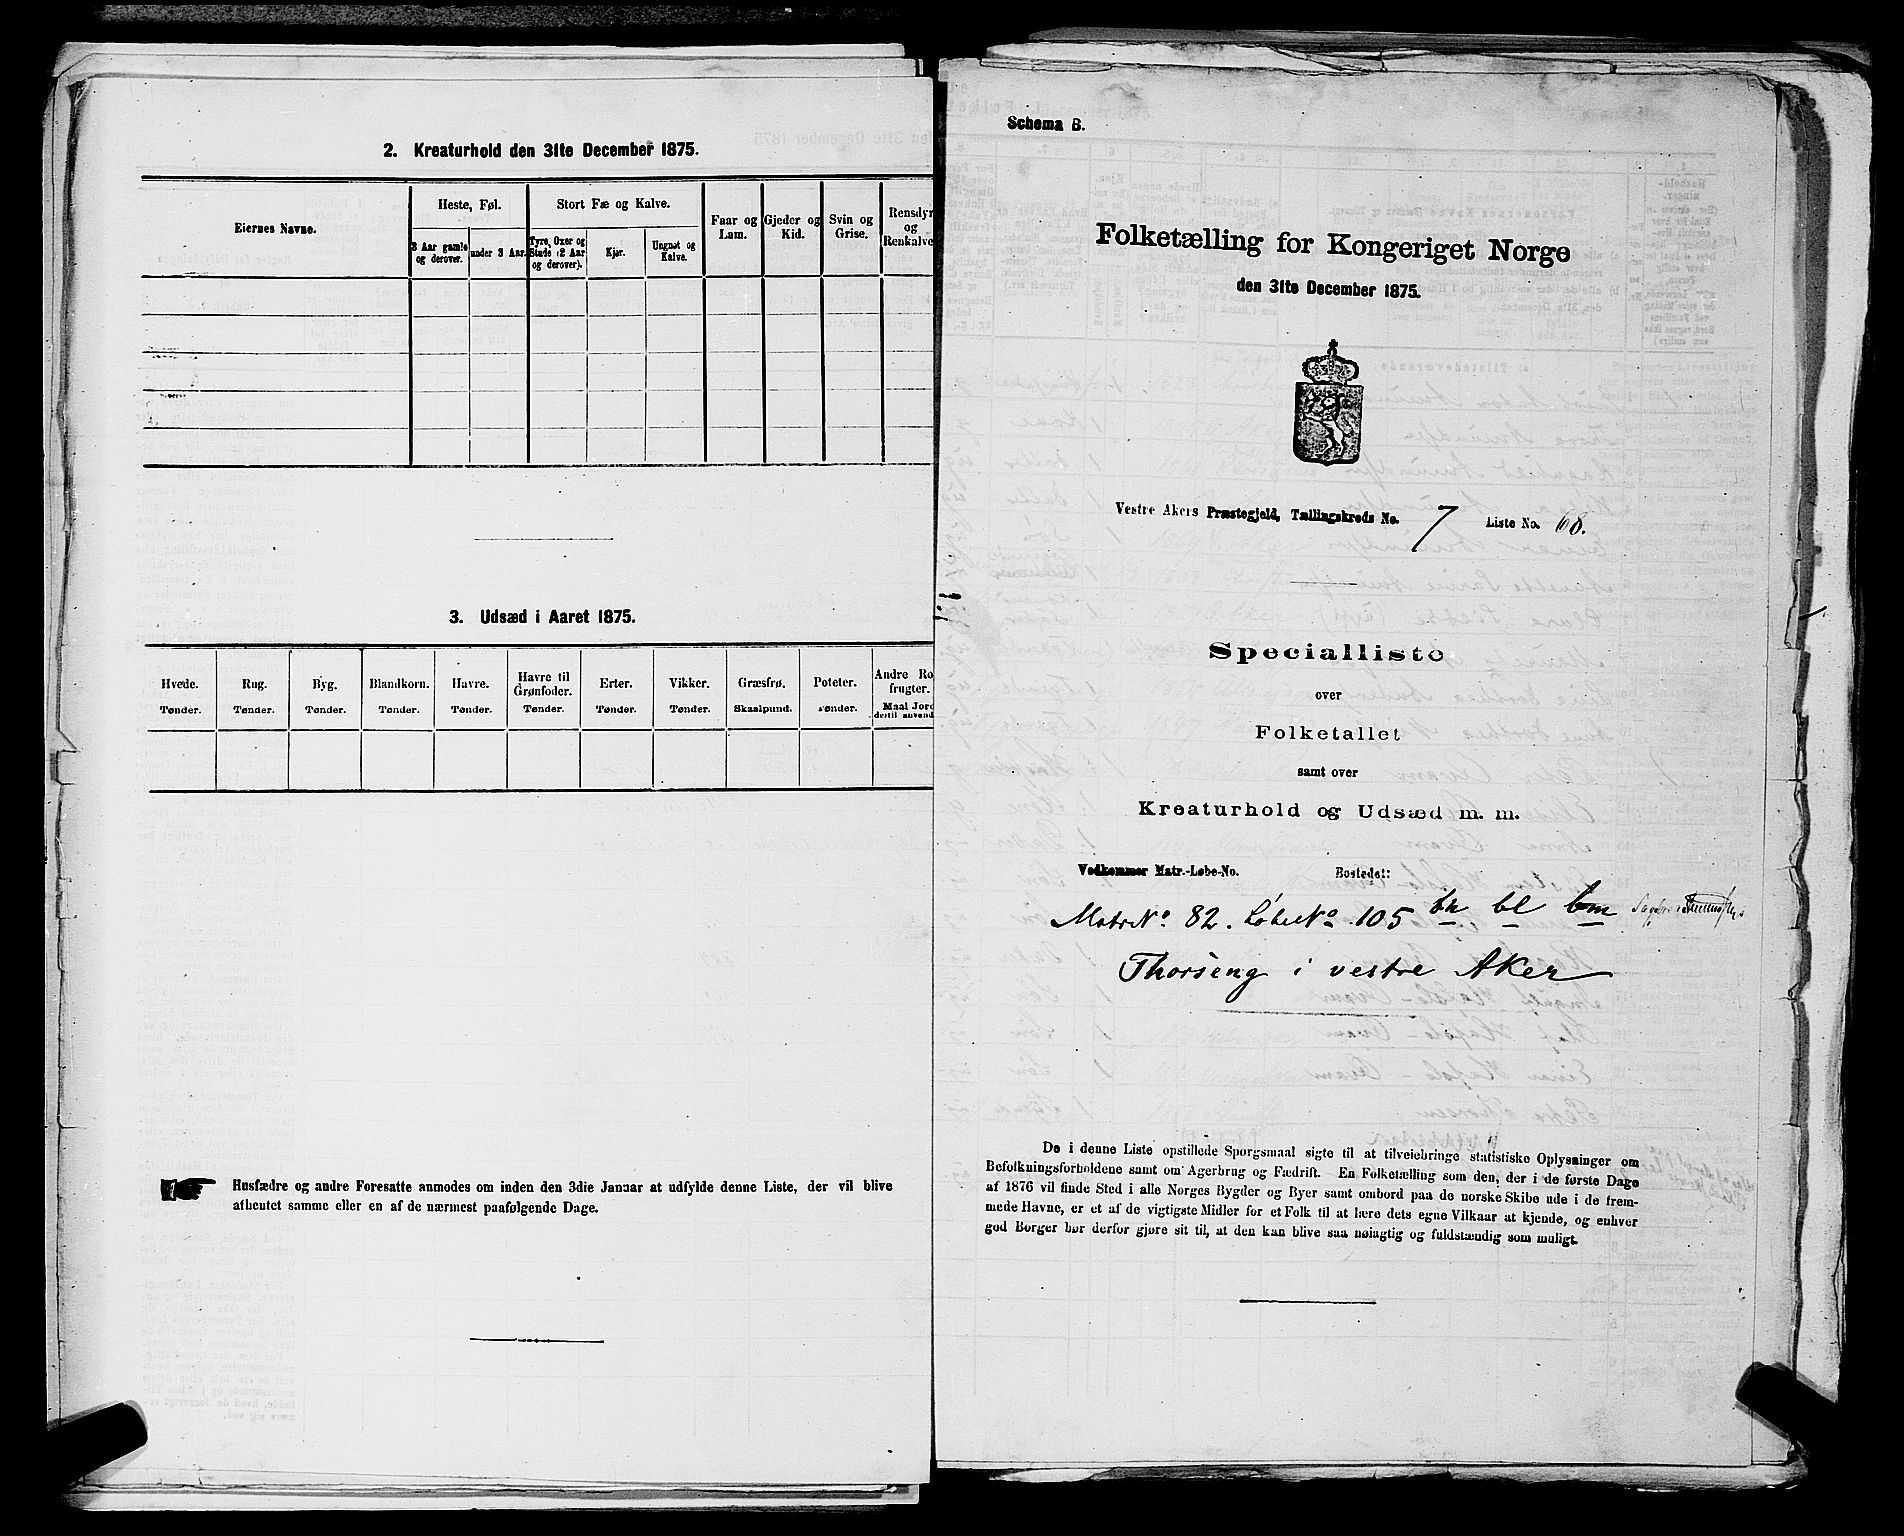 2. Kreaturhold den 31te December 1875.
Eiernes Navne.
Heste, Føl.
Stort Fæ og Kalve.
Faar og Lam.
Gjeder og Kid.
Svin og Grise.
Rensdyr og Renkalve
3 Aar gamle og derover.
under 3 Aar.
Tyre, Oxer og Stude (2 Aar og derover).
Kjør.
Ungnøt og Kalve.
3. Udsæd i Aaret 1875.
Hvede. Rug. Byg. Blandkorn. Havre. Havre til Grønfoder. Erter. Vikker. Græsfrø. Poteter. Andre Ro frugter.
Tønder. Tønder. Tønder. Tønder. Tønder. Tønder. Tønder. Tønder. Skaalpund. Tønder. Maal Jord dertil anvend
Husfædre og andre Foresatte anmodes om inden den 3die Januar at udfylde denne Liste, der vil blive
afhentet samme eller en af de nærmest paafølgende Dage.
Schema B.
Folketælling for Kongeriget Norge
den 31te December 1875.
Vestre Akers Præstegjeld, Tællingskreds No. 7 Liste No. 68.
Specialliste
over
Folketallet
samt over
Kreaturhold og Udsæd m. m.
Vedkommer Matr.-Løbe-No. Bostedet:
Matr No. 82. Løbe No 105 bk bl bm
Thorseng i vestre Aker
De i denne Liste opstillede Spørgsmaal sigte til at tilveiebringe statistiske Oplysninger om
Befolkningsforholdene samt om Agerbrug og Fædrift. En Folketælling som den, der i de første Dage
af 1876 vil finde Sted i alle Norges Bygder og Byer samt ombord paa de norske Skibe ude i de frem-
mede Havne, er et af de vigtigste Midler for et Folk til at lære dets egne Vilkaar at kjende, og enhver
god Borger bør derfor gjøre sit til, at den kan blive saa nøiagtig og fuldstændig som muligt.